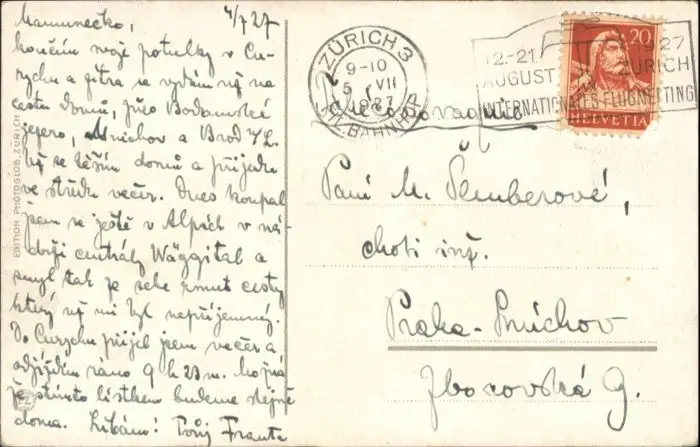 4/7 27
Mamunečko,
končím svoje potulky v Cu-
rychu a zítra se vydám již na
cestu domů, přes Bodamské
jezero, Mnichov a Brod /L.
Už se těším domů a přijedu
ve středu večer. Dnes koupal
jsem se ještě v Alpách v ná-
drži centrály Wäggital a
smyl tak se sebe prach cesty
který už mi byl nepříjemný.
Do Curychu přijel jsem večer a
odjíždím ráno 9 h 23 m. Možná
že s tímto lístkem budeme stejně
doma. Líbám! Tvůj Franta
EDITION PHOTOGLOB, ZÜRICH
PZ
ZÜRICH 3
9-10
5 VII
1927
HL. BAHNHOF
12.-21.
AUGUST
1927
ZÜRICH
INTERNATIONALES FLUGMEETING
20
HELVETIA
Paní M. Šemberové,
choti inž.
Praha-Smíchov
Zborovská 9.